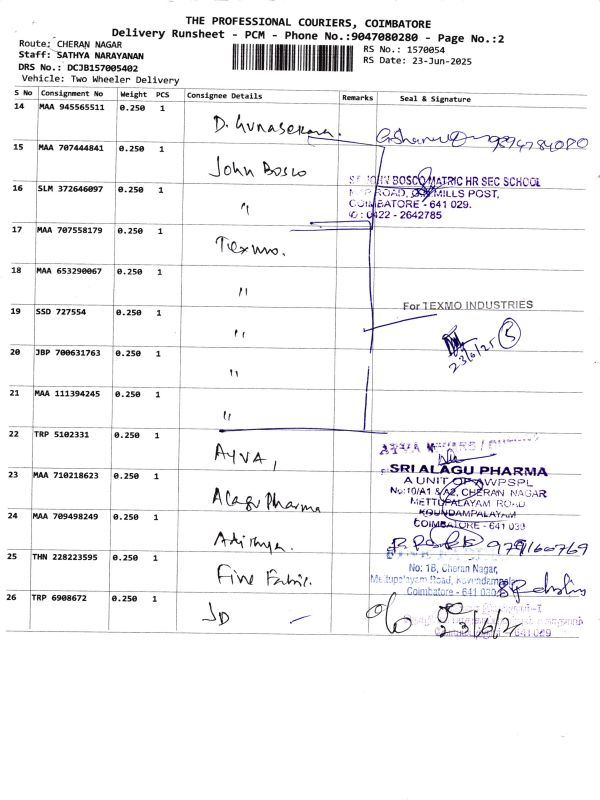 THE PROFESSIONAL COURIERS, COIMBATORE
Delivery Runsheet - PCM - Phone No.:9047080280 - Page No.:2
Route: CHERAN NAGAR
RS No.: 1570054
Staff: SATHYA NARAYANAN
RS Date: 23-Jun-2025
DRS No.: DCJB157005402
Vehicle: Two Wheeler Delivery
S No Consignment No Weight PCS Consignee Details Remarks Seal & Signature
14 MAA 945565511 0.250 1 D. Gunasekara.
15 MAA 707444841 0.250 1 John Bosco
JOHN BOSCO MATRIC HR SEC SCHOOL
16 SLM 372646097 0.250 1 "
ROAD, MILLS POST,
COIMBATORE - 641 029.
0422 - 2642785
17 MAA 707558179 0.250 1 Texmo.
18 MAA 653290067 0.250 1 "
19 SSD 727554 0.250 1 "
For TEXMO INDUSTRIES
20 JBP 700631763 0.250 1 "
23/6/25 3
21 MAA 111394245 0.250 1 "
22 TRP 5102331 0.250 1 AYVA,
SRI ALAGU PHARMA
A UNIT OF AWPSPL
23 MAA 710218623 0.250 1 Alagu Pharma
No:10/A1 & A2, CHERAN NAGAR
METTUPALAYAM ROAD
KOUNDAMPALAYAM
COIMBATORE - 641 030
24 MAA 709498249 0.250 1 Adithya.
25 THN 228223595 0.250 1 Fine Fabric.
No: 1B, Cheran Nagar,
Mettupalayam Road, Kovundampalayam
Coimbatore - 641 030
26 TRP 6908672 0.250 1 JD
641 029